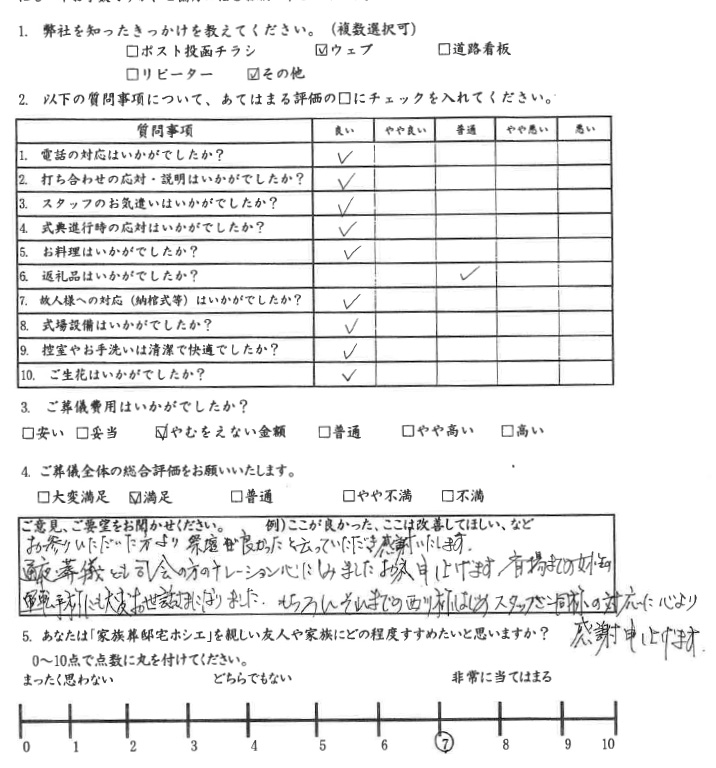 1. 弊社を知ったきっかけを教えてください。（複数選択可）
□ポスト投函チラシ ☑ウェブ □道路看板
□リピーター ☑その他
2. 以下の質問事項について、あてはまる評価の□にチェックを入れてください。
質問事項 良い やや良い 普通 やや悪い 悪い
1. 電話の対応はいかがでしたか？ ✓
2. 打ち合わせの応対・説明はいかがでしたか？ ✓
3. スタッフのお気遣いはいかがでしたか？ ✓
4. 式典進行時の応対はいかがでしたか？ ✓
5. お料理はいかがでしたか？ ✓
6. 返礼品はいかがでしたか？ ✓
7. 故人様への対応（納棺式等）はいかがでしたか？ ✓
8. 式場設備はいかがでしたか？ ✓
9. 控室やお手洗いは清潔で快適でしたか？ ✓
10. ご生花はいかがでしたか？ ✓
3. ご葬儀費用はいかがでしたか？
□安い □妥当 ☑やむをえない金額 □普通 □やや高い □高い
4. ご葬儀全体の総合評価をお願いいたします。
□大変満足 ☑満足 □普通 □やや不満 □不満
ご意見、ご要望をお聞かせください。 例）ここが良かった、ここは改善してほしい、など
お参りいただいた方より祭壇が良かったと云っていただき感謝いたします。
通夜葬儀とも司会の方のナレーション心にしみました お礼申し上げます 斎場までの
にも大変お世話になりました。もちろんそれまでの西村様はじめスタッフご一同様の対応に心より
感謝申し上げます。
5. あなたは「家族葬邸宅ホシエ」を親しい友人や家族にどの程度すすめたいと思いますか？
0〜10点で点数に丸を付けてください。
まったく思わない どちらでもない 非常に当てはまる
0 1 2 3 4 5 6 7 8 9 10